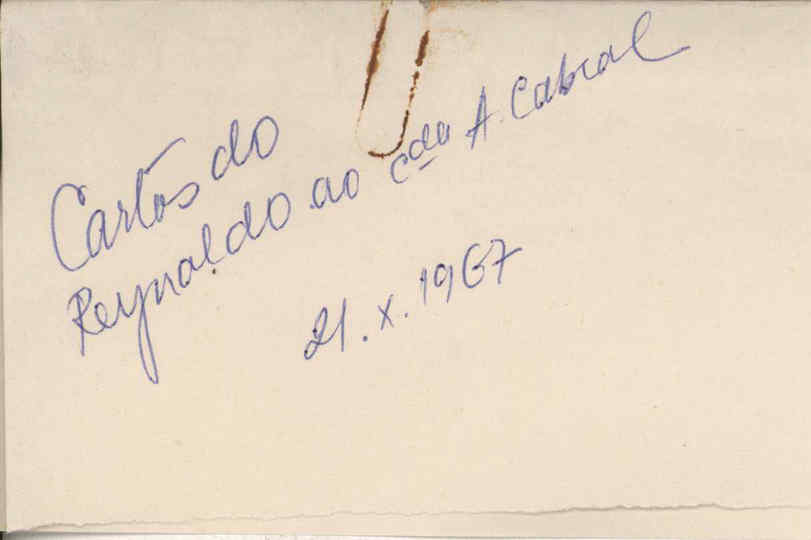 Cartas do
Reynaldo ao cda A. Cabral
21.X.1967